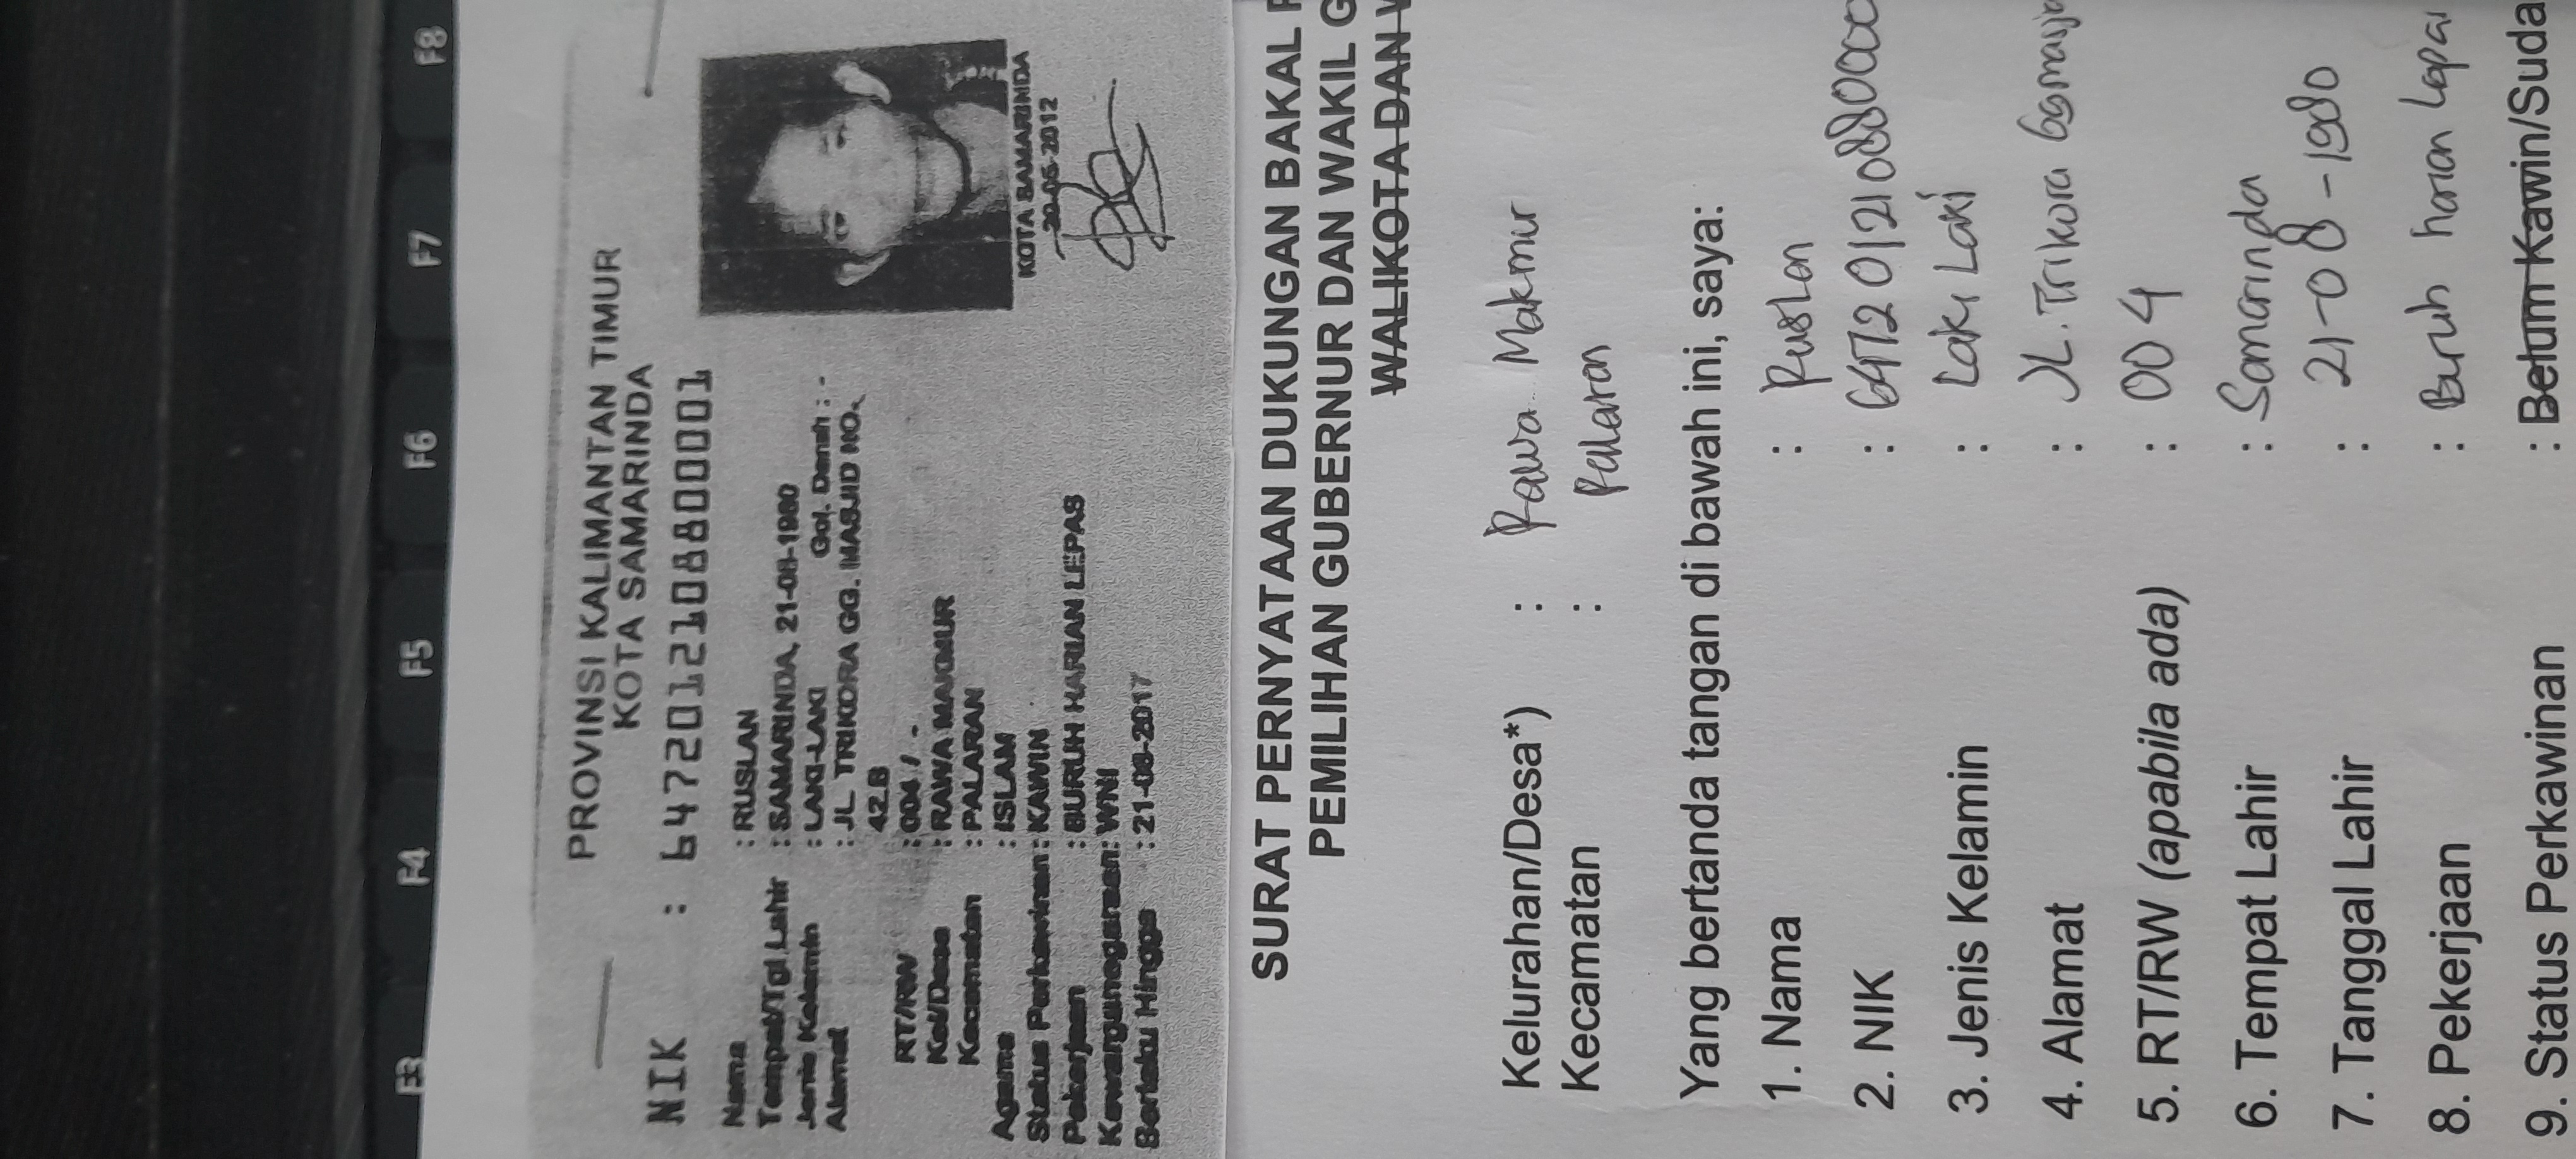 F3 F4 F5 F6 F7 F8
PROVINSI KALIMANTAN TIMUR
KOTA SAMARINDA
NIK : 6472012108800001
Nama : RUSLAN
Tempat/Tgl Lahir : SAMARINDA, 21-08-1980
Jenis Kelamin : LAKI-LAKI Gol. Darah : -
Alamat : JL. TRIKORA GG. MASJID NO.
42.B
RT/RW : 004 / -
Kel/Desa : RAWA MAKMUR
Kecamatan : PALARAN
Agama : ISLAM
Status Perkawinan : KAWIN
Pekerjaan : BURUH HARIAN LEPAS
Kewarganegaraan : WNI
Berlaku Hingga : 21-08-2017
KOTA SAMARINDA
20-05-2012
SURAT PERNYATAAN DUKUNGAN BAKAL P
PEMILIHAN GUBERNUR DAN WAKIL G
WALIKOTA DAN W
Kelurahan/Desa*) : Rawa Makmur
Kecamatan : Palaran
Yang bertanda tangan di bawah ini, saya:
1. Nama : Ruslan
2. NIK : 647201210880000
3. Jenis Kelamin : Laki Laki
4. Alamat : JL. Trikora
5. RT/RW (apabila ada) : 004
6. Tempat Lahir : Samarinda
7. Tanggal Lahir : 21-08-1980
8. Pekerjaan : Buruh harian lepas
9. Status Perkawinan : Belum Kawin/Suda